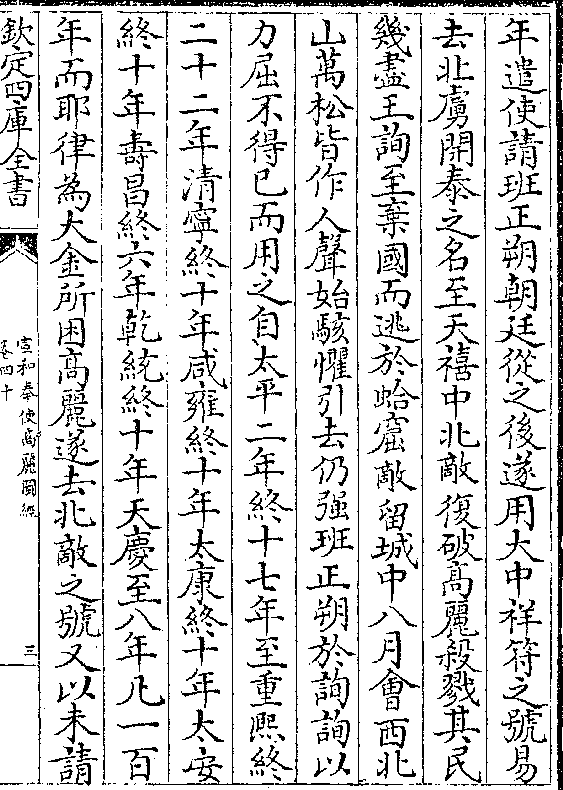 年遣使請班正朔朝廷從之後遂用大中祥符之號易
去北虜開泰之名至天禧中北敵復破高麗殺戮其民
幾盡王詢至棄國而逃於蛤窟敵留城中八月會西北
山萬松皆作人聲始駭懼引去仍强班正朔於詢詢以
力屈不得已而用之自太平二年終十七年至重熙終
二十二年清寧終十年咸雍終十年太康終十年太安
終十年壽昌終六年乾統終十年天慶至八年凡一百
年而耶律為大金所困高麗遂去北敵之號又以未請
欽定四庫全書
宣和奉使高麗圖經
卷四十
三